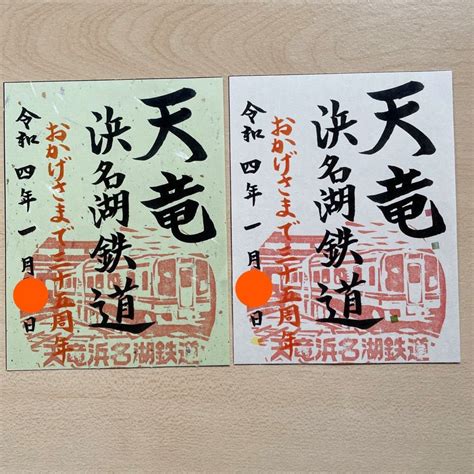 天竜
浜名湖鉄道
おかげさまで三十五周年
令和四年一月 日
天竜浜名湖鉄道
天竜
浜名湖鉄道
おかげさまで三十五周年
令和四年一月 日
天竜浜名湖鉄道